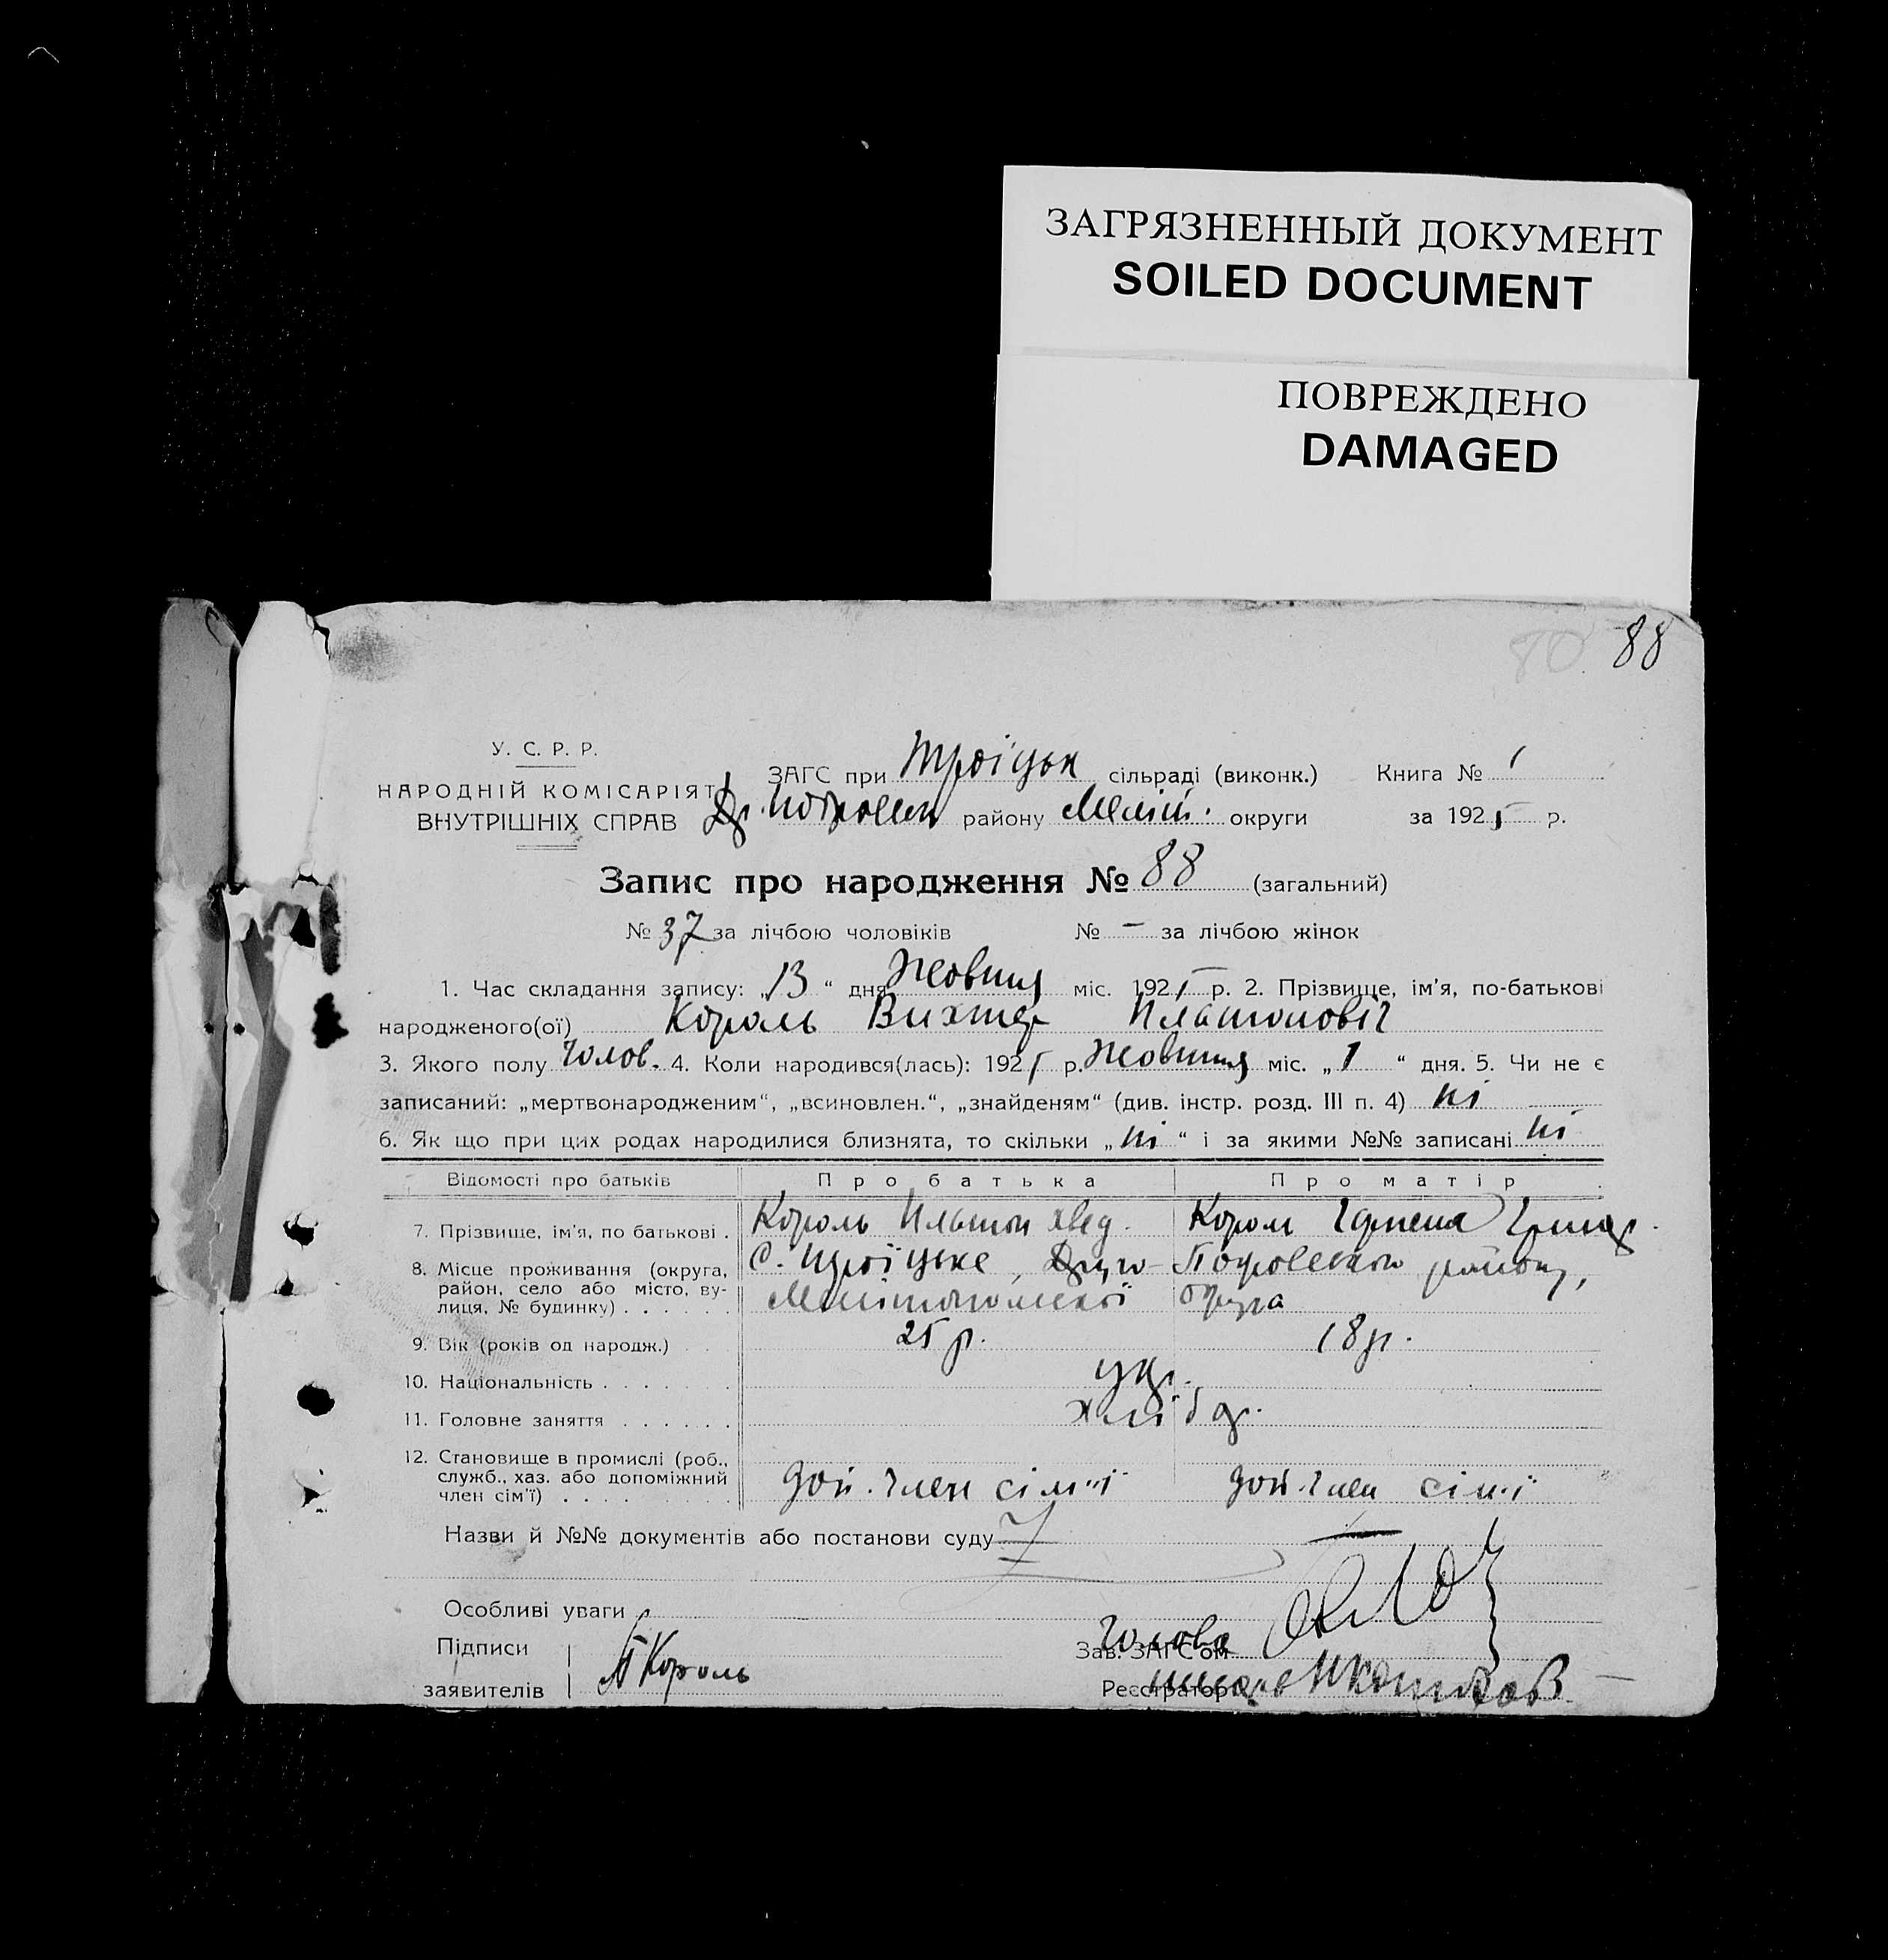 ЗАГРЯЗНЕННЫЙ ДОКУМЕНТ
SOILED DOCUMENT
ПОВРЕЖДЕНО
DAMAGED
80 88
У. С. Р. Р.
НАРОДНІЙ КОМІСАРІЯТ
ВНУТРІШНІХ СПРАВ
ЗАГС при Троіцьк сільраді (виконк.) Книга № 1
району Меліт. округи за 1925 р.
Запис про народження № 88 (загальний)
№ 37 за лічбою чоловіків № – за лічбою жінок
1. Час складання запису: „13“ дня Жовтня міс. 1925 р. 2. Прізвище, ім'я, по-батькові
народженого(ої) Король Вихтер Платоновіч
3. Якого полу чолов. 4. Коли народився(лась): 1925 р. Жовтня міс. „1“ дня. 5. Чи не є
записаний: „мертвонародженим“, „всиновлен.“, „знайденям“ (див. інстр. розд. III п. 4) ні
6. Як що при цих родах народилися близнята, то скільки „ні“ і за якими №№ записані ні
Відомості про батьків Про батька Про матір
7. Прізвище, ім'я, по батькові . Король Платон Хвед. Король Григор.
8. Місце проживання (округа, район, село або місто, вулиця, № будинку) . . . . . . С. Троіцьке, Покровського району,
Мелітопольскоі округа
9. Вік (років од народж.) . . 25 р. 18 р.
10. Національність . . . . . . . укр.
11. Головне заняття . . . . . . хлібор.
12. Становище в промислі (роб., служб., хаз. або допоміжний член сім'ї) . . . . . . . . . доп. член сім'ї доп. член сім'ї
Назви й №№ документів або постанови суду
Особливі уваги
Підписи
заявителів П Король
Зав. ЗАГС'ом Голова
Реєстратор